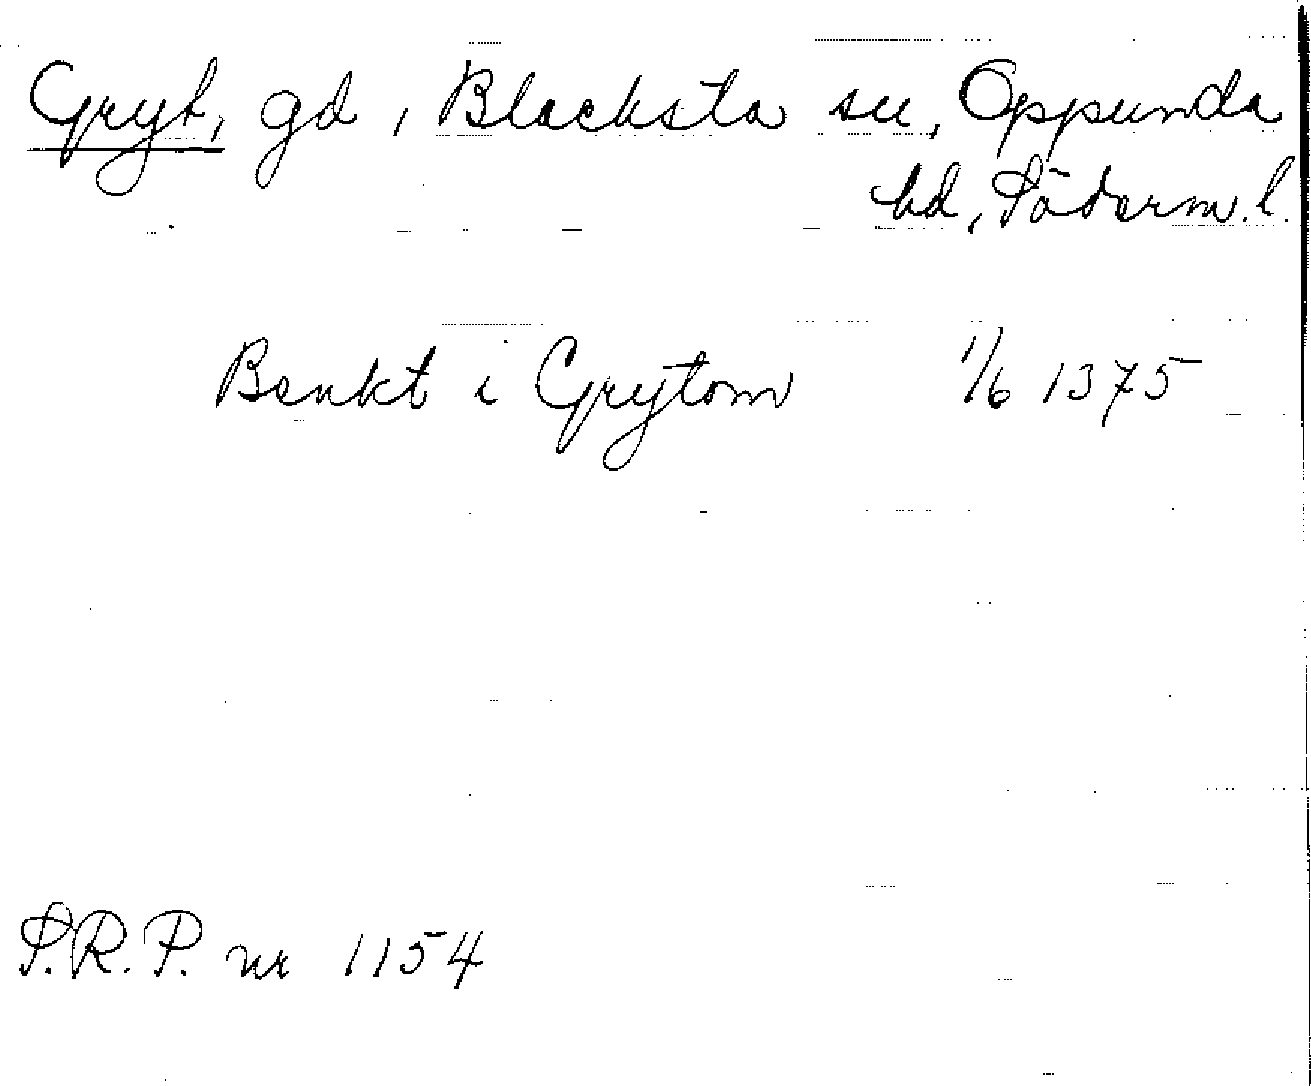 Gryt, gd, Blacksta sn, Oppunda
hd, Söderm. l.
Benkt i Grytom 1/6 1375
S.R.P. nr 1154